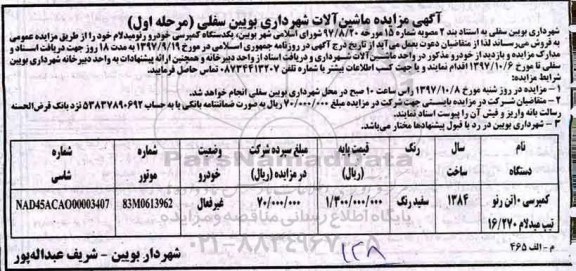 آگهی مزایده ماشین‌آلات شهرداری بویین سفلی (مرحله اول)
شهرداری بویین سفلی به استناد بند ۲ مصوبه شماره ۱۵ مورخه ۹۷/۸/۲۰ شورای اسلامی شهر بویین، یکدستگاه کمپرسی خودرو رنومیدلام خود را از طریق مزایده عمومی
به فروش می‌رساند لذا از متقاضیان دعوت بعمل می‌آید از تاریخ درج آگهی در روزنامه جمهوری اسلامی در مورخ ۱۳۹۷/۹/۱۹ به مدت ۱۸ روز جهت دریافت اسناد و
مدارک مزایده و بازدید از خودرو مذکور در واحد ماشین‌آلات شهرداری و دریافت اسناد از واحد دبیرخانه و همچنین ارائه پیشنهادات به واحد دبیرخانه شهرداری بویین
سفلی تا مورخ ۱۳۹۷/۱۰/۶ اقدام نمایند و یا جهت کسب اطلاعات بیشتر با شماره تلفن ۰۸۷۳۴۴۱۳۲۰۷ تماس حاصل فرمایید.
شرایط مزایده:
۱ – مزایده در روز شنبه مورخ ۱۳۹۷/۱۰/۸ راس ساعت ۱۰ صبح در محل شهرداری بویین سفلی انجام خواهد شد.
۲ – متقاضیان شرکت در مزایده بایستی جهت شرکت در مزایده مبلغ ۷۰/۰۰۰/۰۰۰ ریال به صورت ضمانتنامه بانکی یا به حساب ۵۳۸۳۷۸۹۰۶۹۲ نزد بانک قرض‌الحسنه
رسالت بانه واریز و فیش آن را پیوست اسناد نمایند.
۳ – شهرداری بویین در رد یا قبول پیشنهادها مختار می‌باشد.
نام دستگاه | سال ساخت | رنگ | قیمت پایه (ریال) | مبلغ سپرده شرکت در مزایده (ریال) | وضعیت خودرو | شماره موتور | شماره شاسی
کمپرسی ۱۰تن رنو تیپ میدلام ۱۶/۲۷۰ | ۱۳۸۴ | سفید رنگ | ۱/۳۰۰/۰۰۰/۰۰۰ | ۷۰/۰۰۰/۰۰۰ | غیرفعال | 83M0613962 | NAD45ACAO00003407
م – الف ۴۶۵
۱۲۸
شهردار بویین – شریف عبداله‌پور
پایگاه اطلاع رسانی مناقصه و مزایده
۰۲۱-۸۸۳۴۹۶۷۰
ParsNamadData